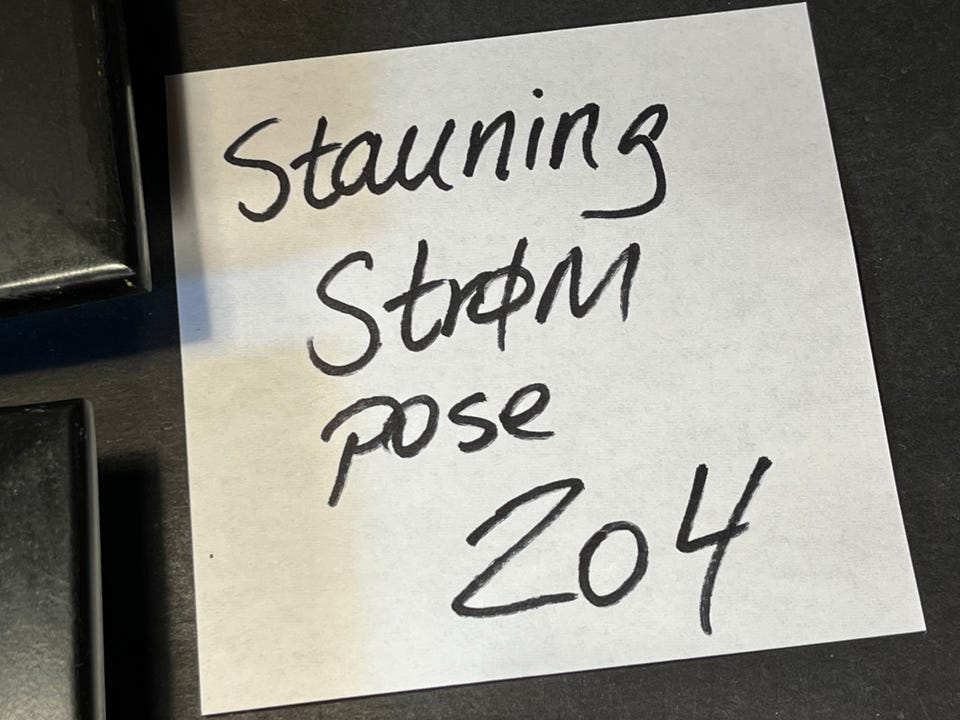 Stauning
StrøM
pose
204